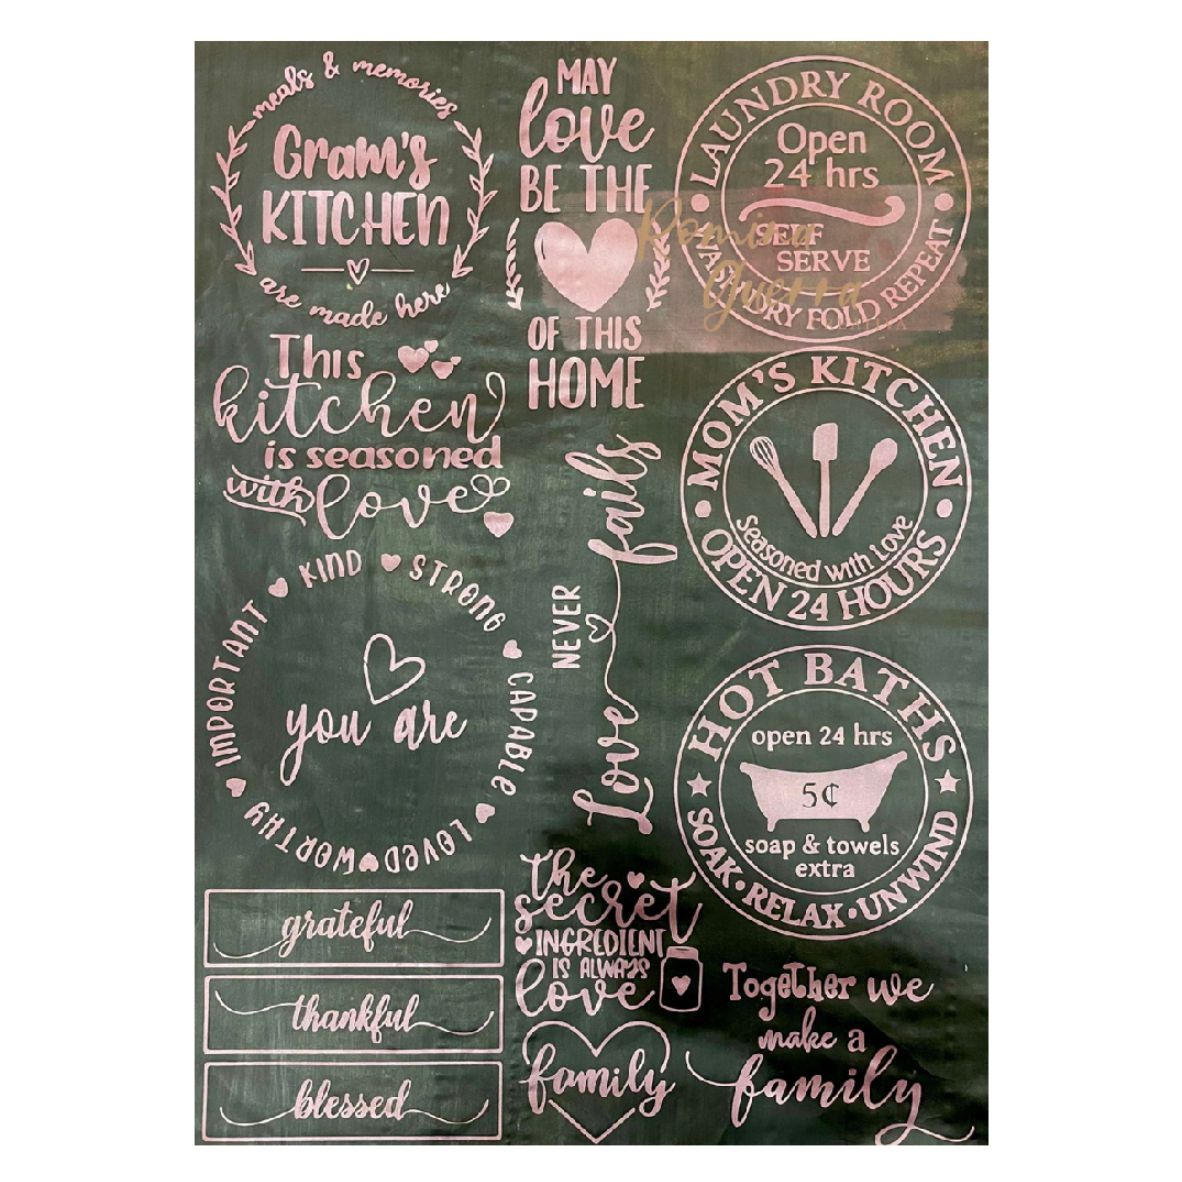 meals & memories
Gram's
KITCHEN
are made here
MAY
love
BE THE
OF THIS
HOME
LAUNDRY ROOM
Open
24 hrs
SELF
SERVE
WASH DRY FOLD REPEAT
Romina
Guerra
This
kitchen
is seasoned
with love
MOM'S KITCHEN
Seasoned with Love
OPEN 24 HOURS
Love
NEVER
fails
KIND
STRONG
CAPABLE
LOVED
WORTHY
IMPORTANT
you are
HOT BATHS
open 24 hrs
5¢
soap & towels
extra
SOAK•RELAX•UNWIND
grateful
thankful
blessed
the
secret
INGREDIENT
IS ALWAYS
love
family
Together we
make a
family